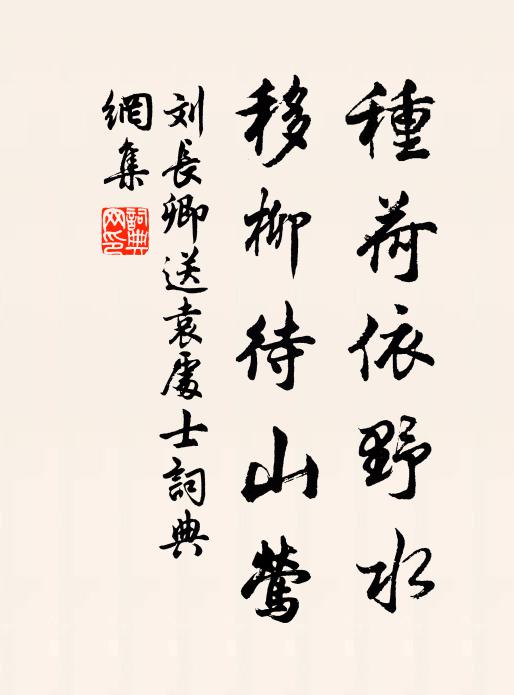 種荷依野水
移柳待山鶯
刘長卿送袁處士詞典
網集
詞典網印